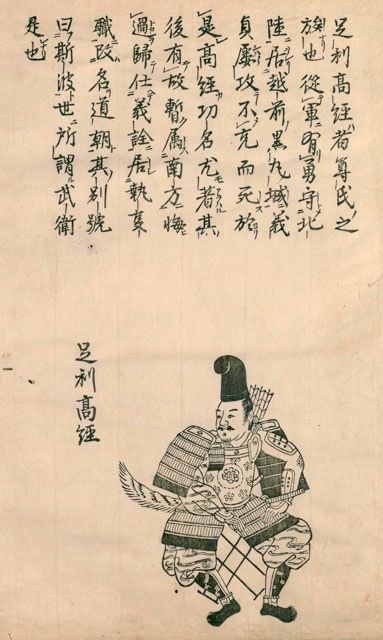 足利高經者尊氏之
族也從軍有勇守北
陸居越前黒丸城義
貞屢攻不克而死於
是高經功名尤著其
後有故暫属南方悔
過歸仕義詮居執事
職改名道朝其別號
曰斯波世所謂武衛
是也
足利高經